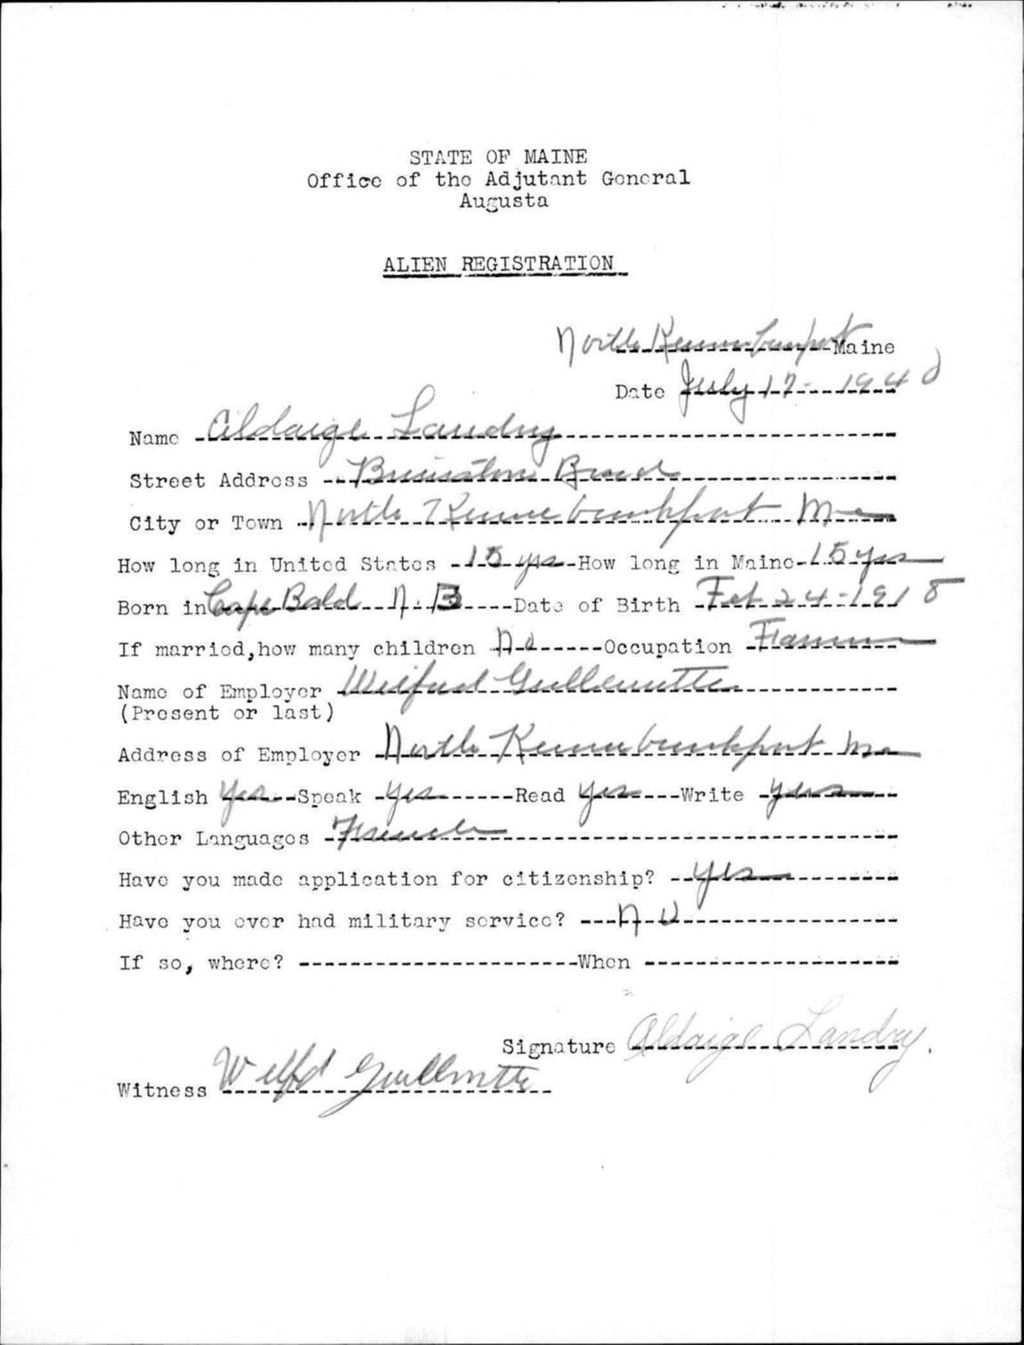 STATE OF MAINE
Office of the Adjutant General
Augusta
ALIEN REGISTRATION
North Kennebunkport Maine
Date July 17 - 1940
Name Aldaige Landry
Street Address
City or Town North Kennebunkport Me
How long in United States 15 yrs How long in Maine 15 yrs
Born in Cape Bald N. B Date of Birth Feb 24 - 1918
If married, how many children No Occupation
Name of Employer Wilfred Guillemette
(Present or last)
Address of Employer North Kennebunkport Me
English Yes Speak yes Read Yes Write yes
Other Languages French
Have you made application for citizenship? yes
Have you ever had military service? No
If so, where? When
Signature Aldaige Landry.
Witness Wilfd Guillmette